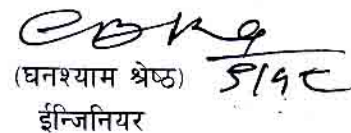 (घनश्याम श्रेष्ठ) ५/१८
ईन्जिनियर